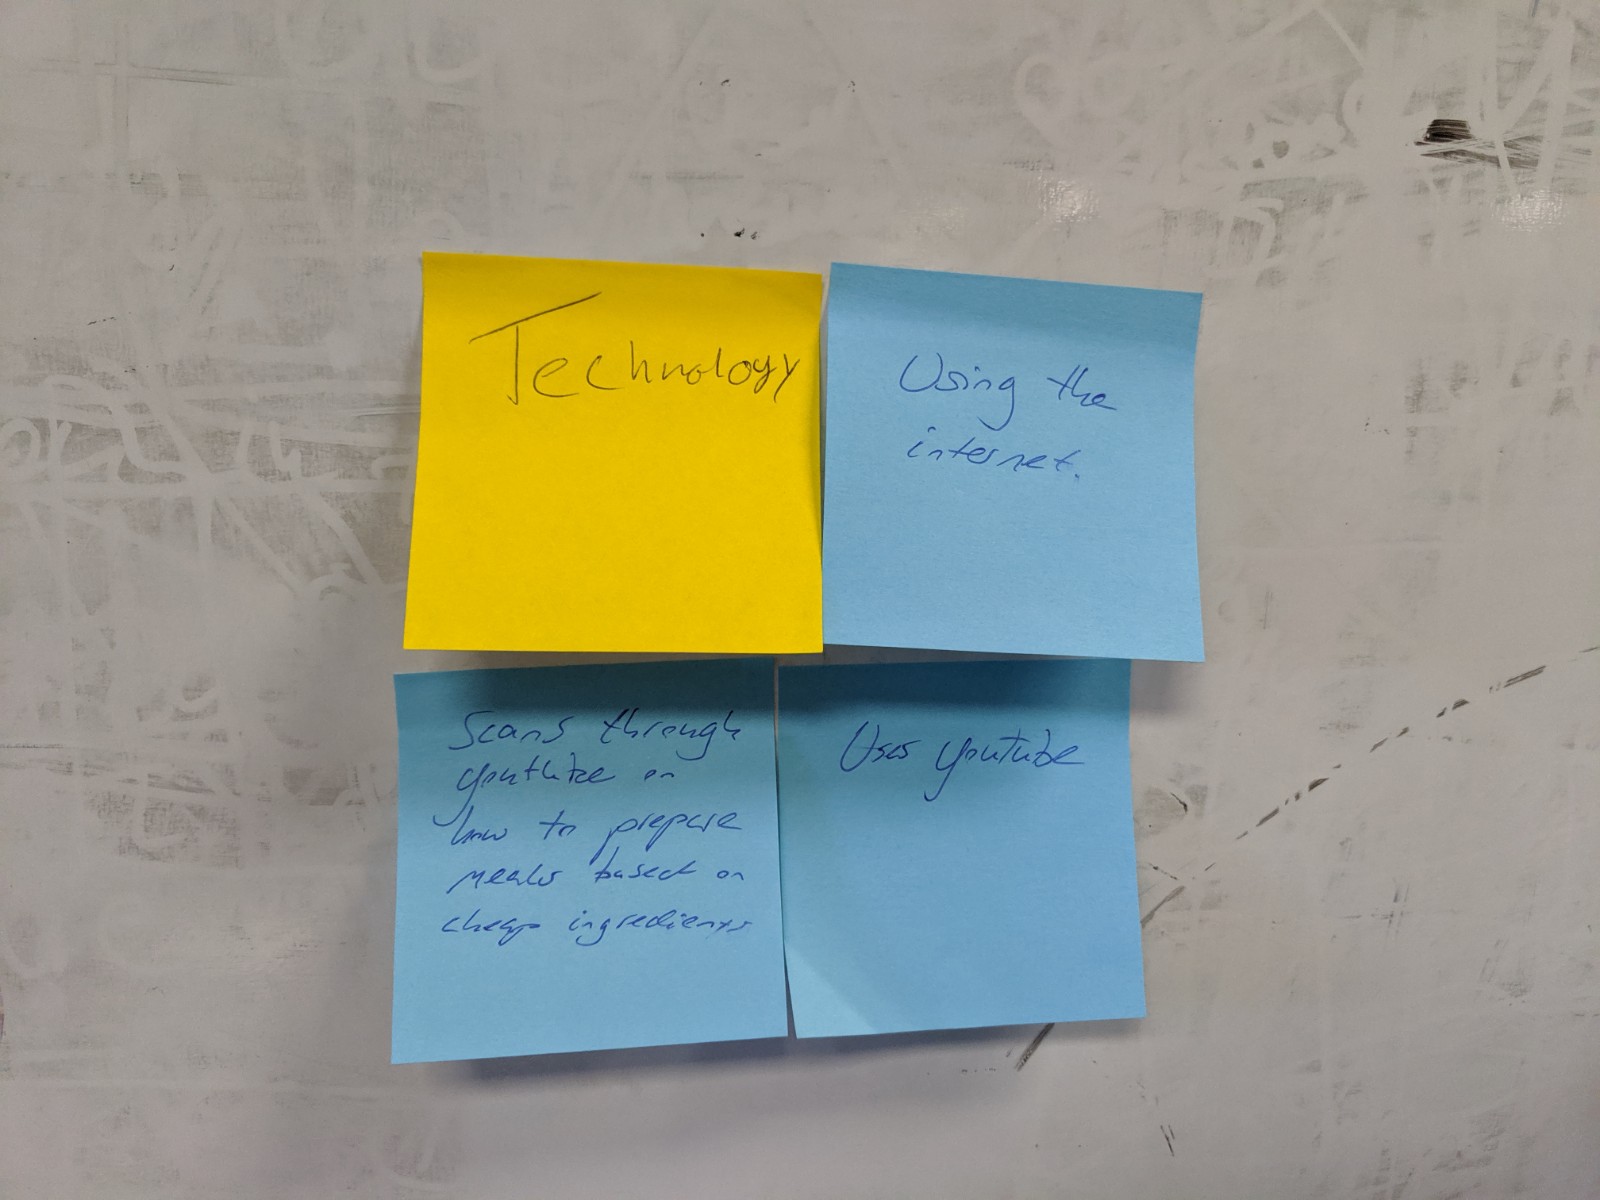 Technology
Using the
internet.
Scans through
youtube on
how to prepare
meals based on
cheap ingredients
Uses youtube